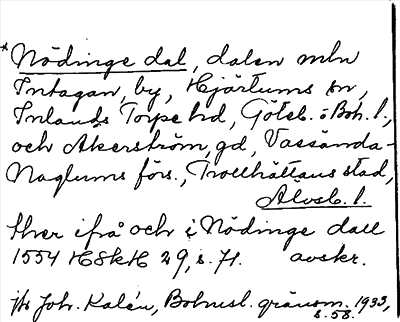 *Nödinge dal, dalen mln
Intagan, by, Hjärtums sn,
Inlands Torpe hd, Göteb. o Boh. l.,
och Åkerström, gd, Vassända-
Naglums förs., Trollhättans stad,
Älvsb. l.
ther ifrå och i Nödinge dall
1554 HSkH 29, s. 71. avskr.
jfr Joh. Kalén, Bohusl. gränsm. 1933,
s. 58.